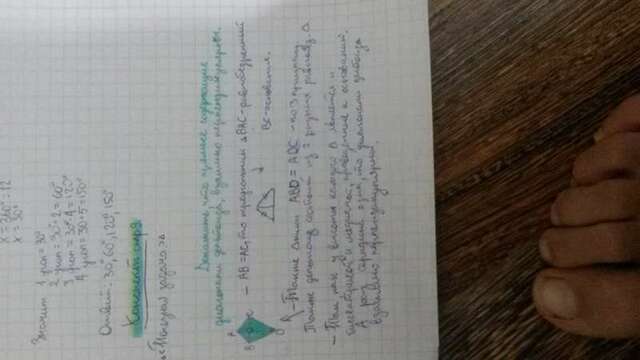 x = 360° : 12
x = 30°
Значит 1 угол = 30°
2 угол = 30°·2 = 60°
3 угол = 30°·4 = 120°
4 угол = 30·5 = 150°
Ответ: 30°, 60°, 120°, 150°
Конспект стр 9
"Полезная задача"
Докажите что прямые содержащие
диагонали дельтоида, взаимно перпендикулярны.
A
B
C
D
— AB = AC, то треугольник △BAC - равнобедренный
BC - основание.
— Также ABD = ADC - по 3 признаку
Также дельтоид состоит из 2 разных равноб. △
— Так как у высоты каждого △ является и
биссектрисой и медианой, проведённые к основанию.
А раз середина одна, то диагонали
взаимно перпендикулярны.